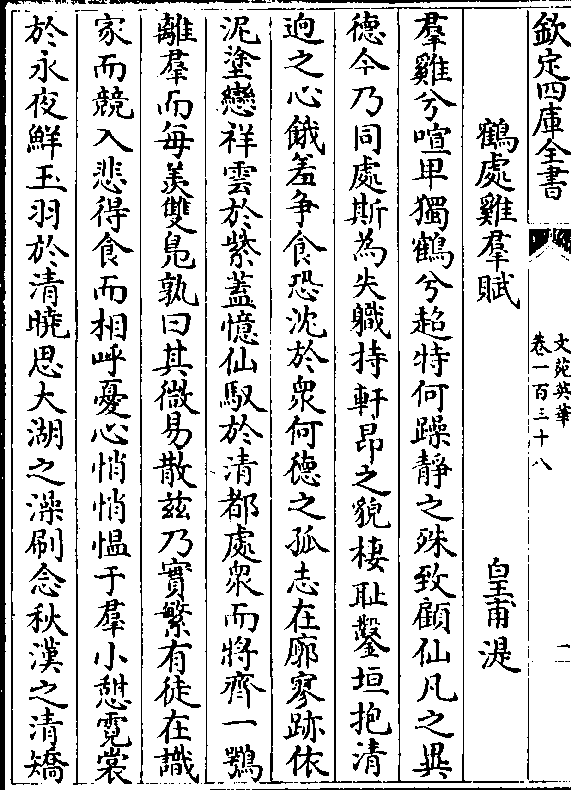 欽定四庫全書
文苑英華
卷一百三十八
二
鶴處雞羣賦
皇甫湜
羣雞兮喧卑獨鶴兮超特何躁靜之殊致顧仙凡之異
德今乃同處斯為失職持軒昂之貌棲恥鑿垣抱清
逈之心餓羞争食恐沈於衆何德之孤志在廓寥跡依
泥塗戀祥雲於紫蓋憶仙馭於清都處衆而將齊一鶚
離羣而每羨雙鳧孰曰其微易散茲乃實繁有徒在識
家而競入悲得食而相呼憂心悄悄愠于羣小憇霓裳
於永夜鮮玉羽於清曉思大湖之澡刷念秋漢之清矯